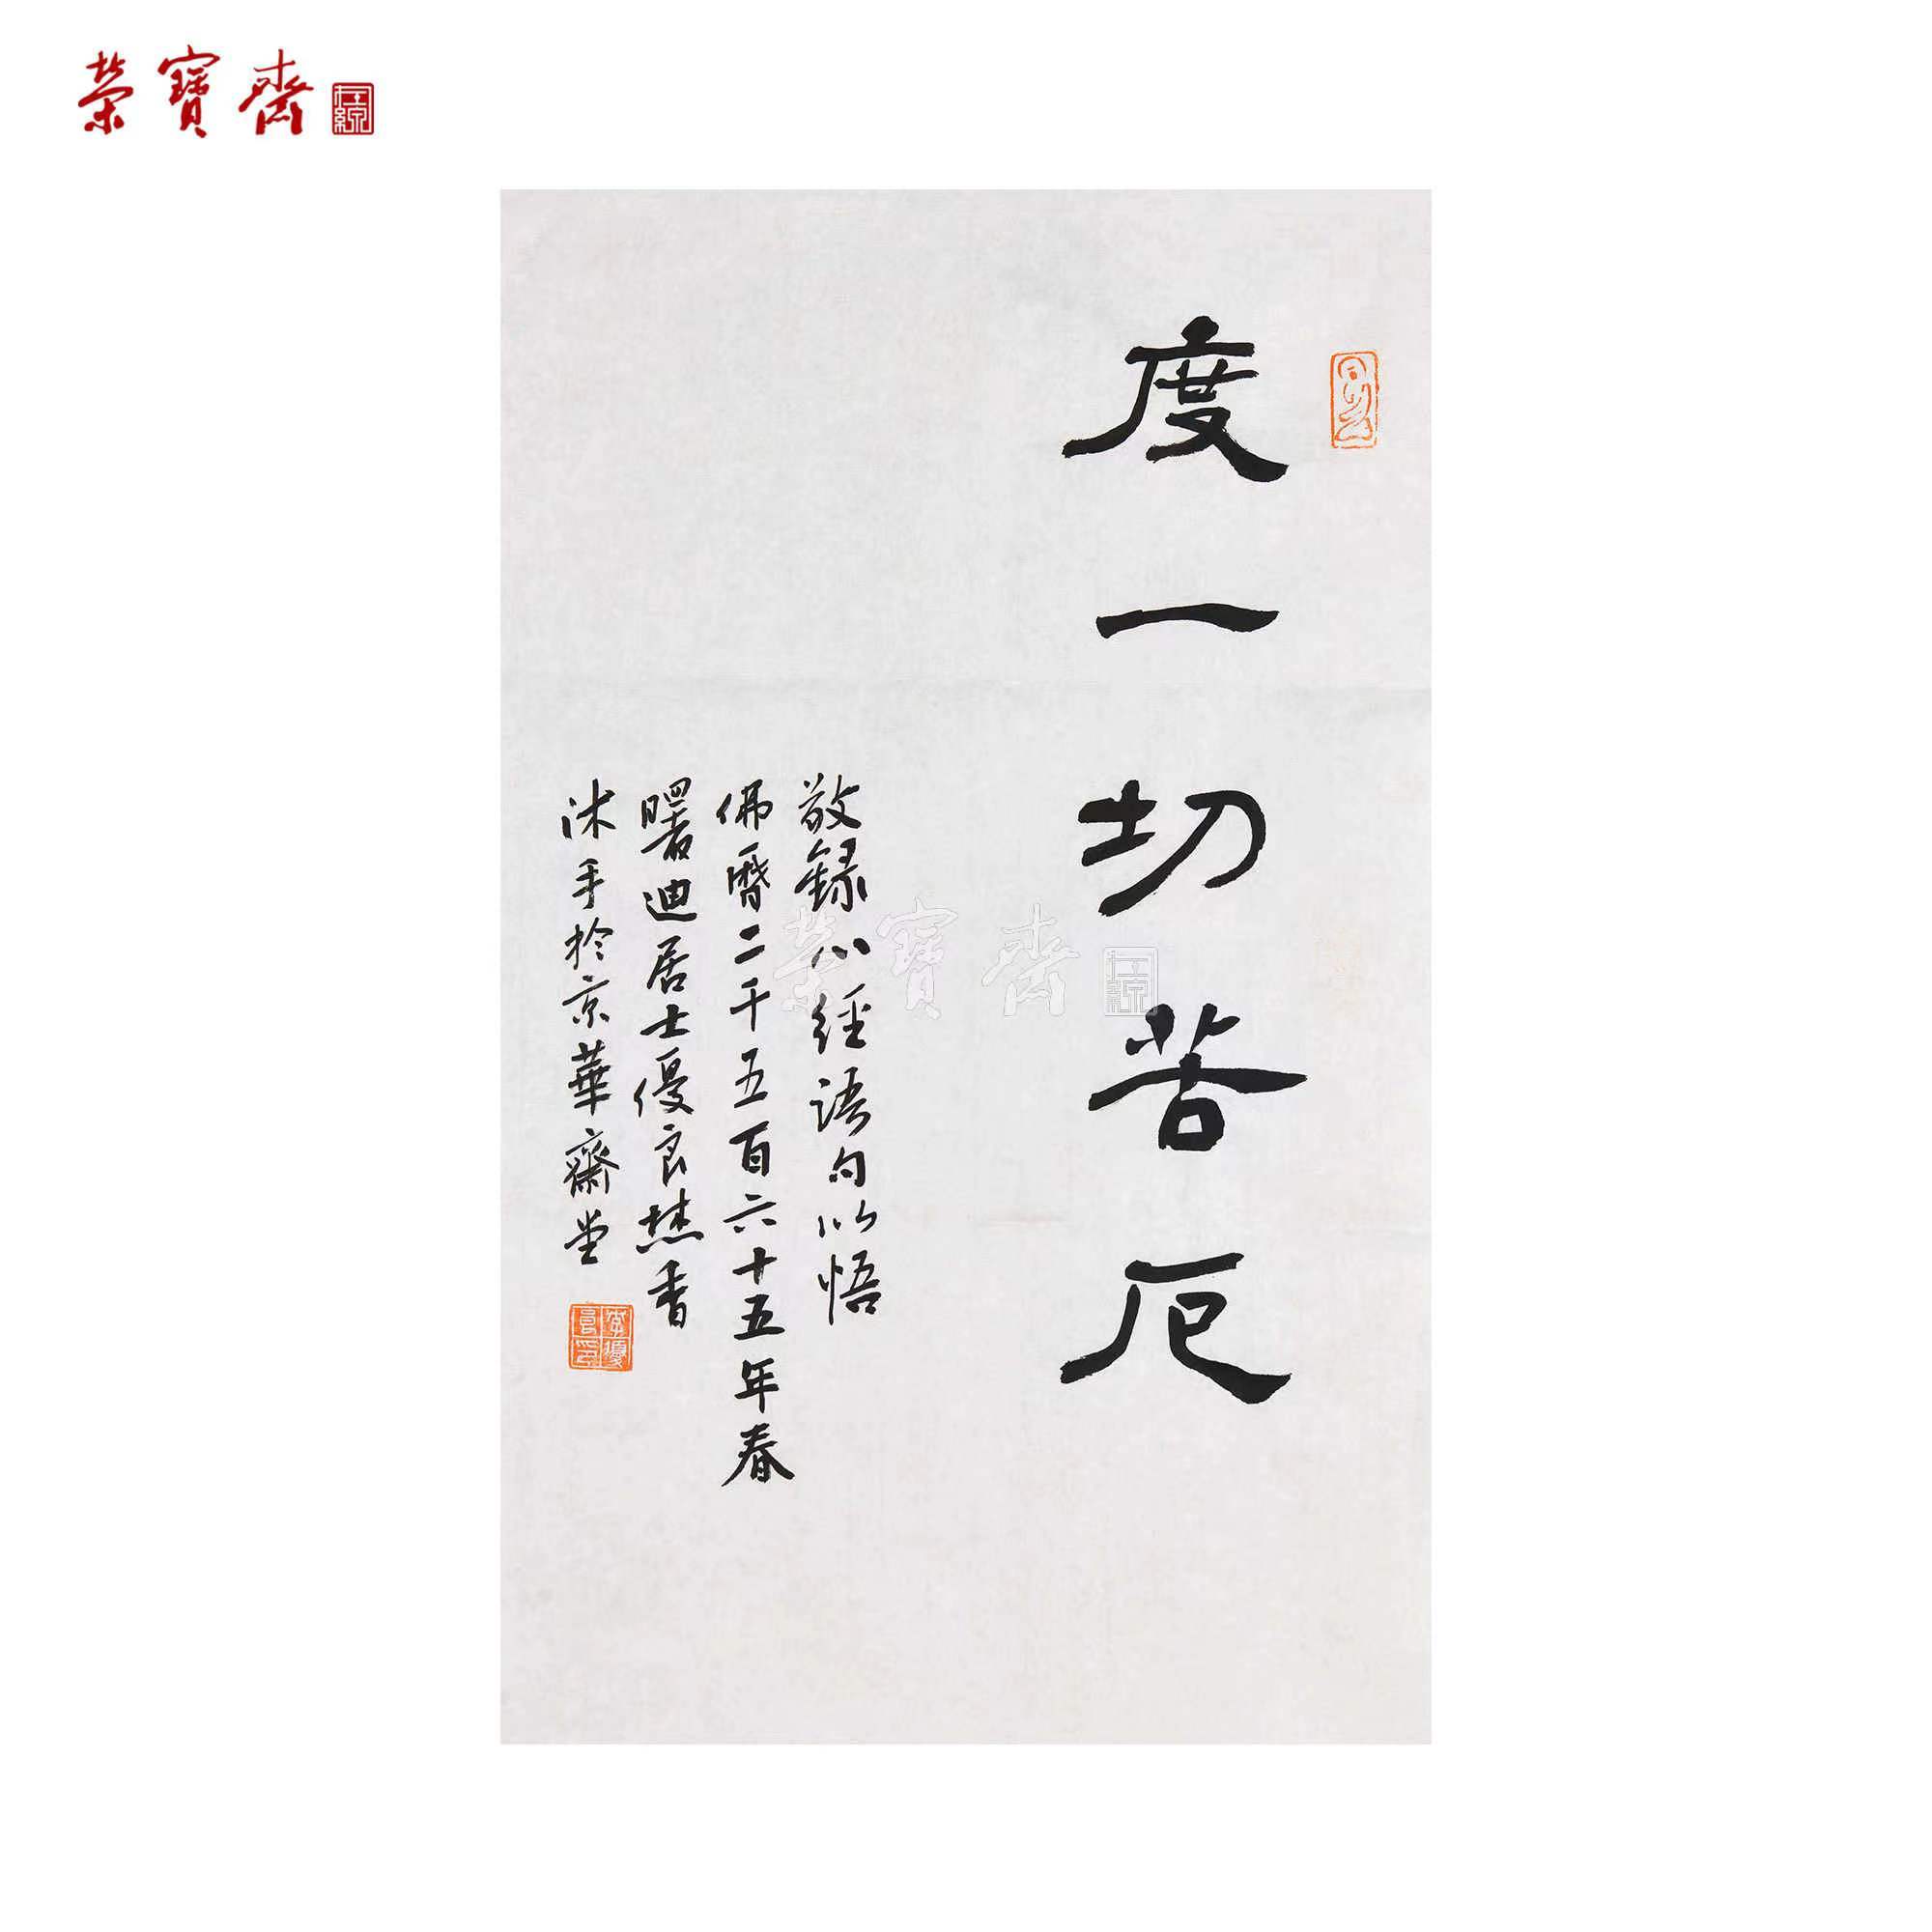 榮寶齋
度一切苦厄
敬録心經語句以悟
佛曆二千五百六十五年春
曙迪居士優良焚香
沐手於京華齋堂
李優良印
榮寶齋